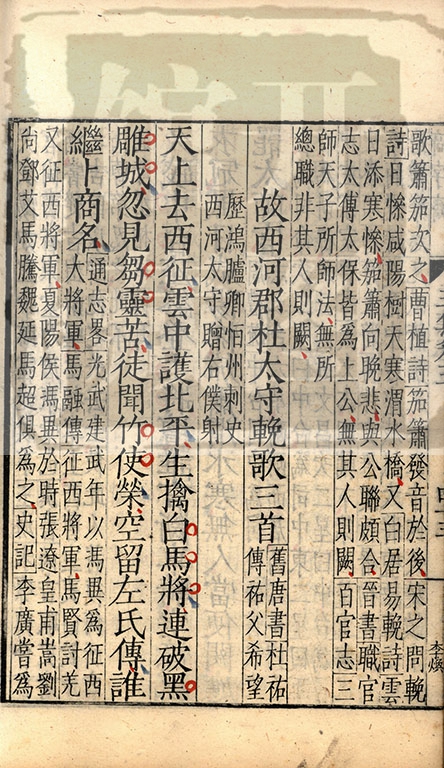 歌簫笳次之曹植詩笳簫發音於後宋之問輓
詩日慘咸陽樹天寒渭水橋又白居易輓詩雲
日添寒慘笳簫向晚悲與公聯頗合晉書職官
志太傅太保皆為上公無其人則闕百官志三
師天子所師法無所
總職非其人則闕
故西河郡杜太守輓歌三首
舊唐書杜祐
傳祐父希望
歷鴻臚卿怡州刺史
西河太守贈右僕射
天上去西征雲中護北平生擒白馬將連破黑
雕城忽見芻靈苦徒聞竹使榮空留左氏傳誰
繼卜商名
通志畧光武建武年以馮異為征西
大將軍馬融傳征西將軍馬賢討羌
又征西將軍夏陽侯馮異於時張遼皇甫嵩劉
尚鄧艾馬騰魏延馬超俱為之史記李廣嘗為
李煥